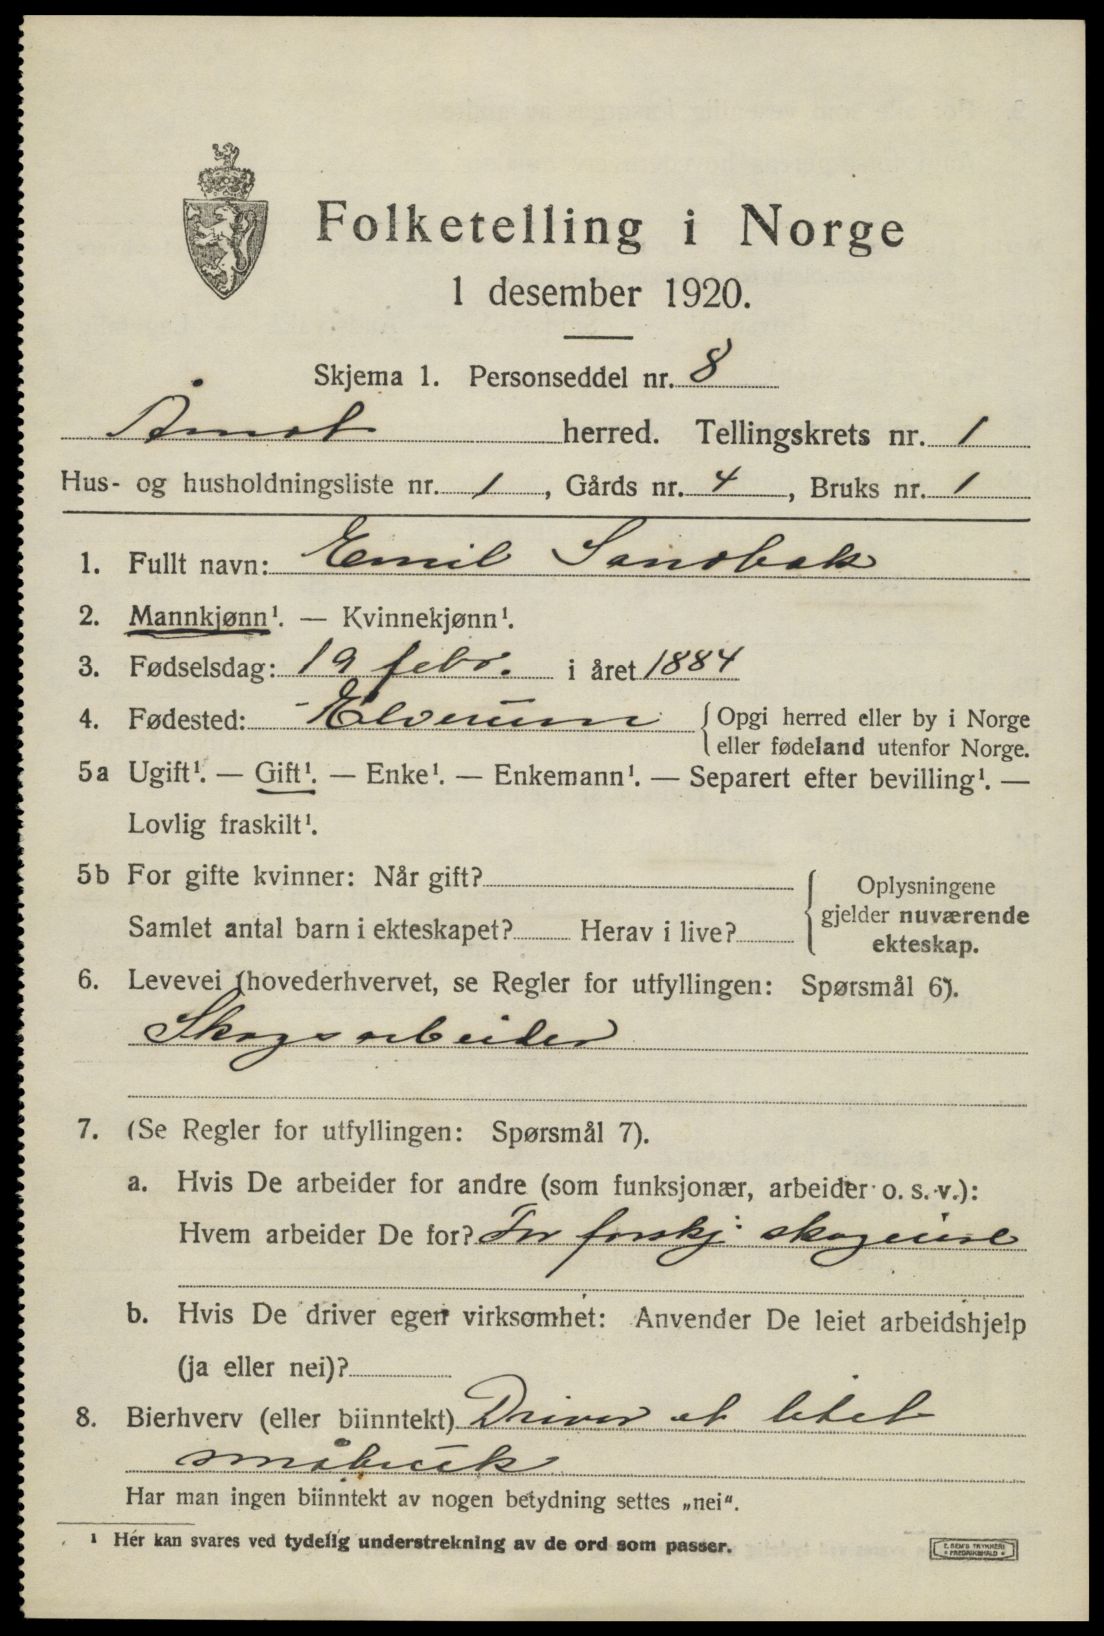 Folketelling i Norge
1 desember 1920.
Skjema 1. Personseddel nr. 8
Åmot herred. Tellingskrets nr. 1
Hus- og husholdningsliste nr. 1, Gårds nr. 4, Bruks nr. 1
1. Fullt navn: Emil Sandbak
2. Mannkjønn¹. — Kvinnekjønn¹.
3. Fødselsdag: 19 febr. i året 1884
4. Fødested: Elverum {Opgi herred eller by i Norge
eller fødeland utenfor Norge.
5a Ugift¹. — Gift¹. — Enke¹. — Enkemann¹. — Separert efter bevilling¹. —
Lovlig fraskilt¹.
5b For gifte kvinner: Når gift?
Samlet antal barn i ekteskapet? Herav i live?
{ Oplysningene
gjelder nuværende
ekteskap.
6. Levevei (hovederhvervet, se Regler for utfyllingen: Spørsmål 6).
Skogsarbeider
7. (Se Regler for utfyllingen: Spørsmål 7).
a. Hvis De arbeider for andre (som funksjonær, arbeider o. s. v.):
Hvem arbeider De for? For forskj. skogeiere
b. Hvis De driver egen virksomhet: Anvender De leiet arbeidshjelp
(ja eller nei)?
8. Bierhverv (eller biinntekt) Driver et litet
småbruk
Har man ingen biinntekt av nogen betydning settes „nei“.
¹ Her kan svares ved tydelig understrekning av de ord som passer.
E. SEM'S TRYKKERI
FREDRIKSHALD